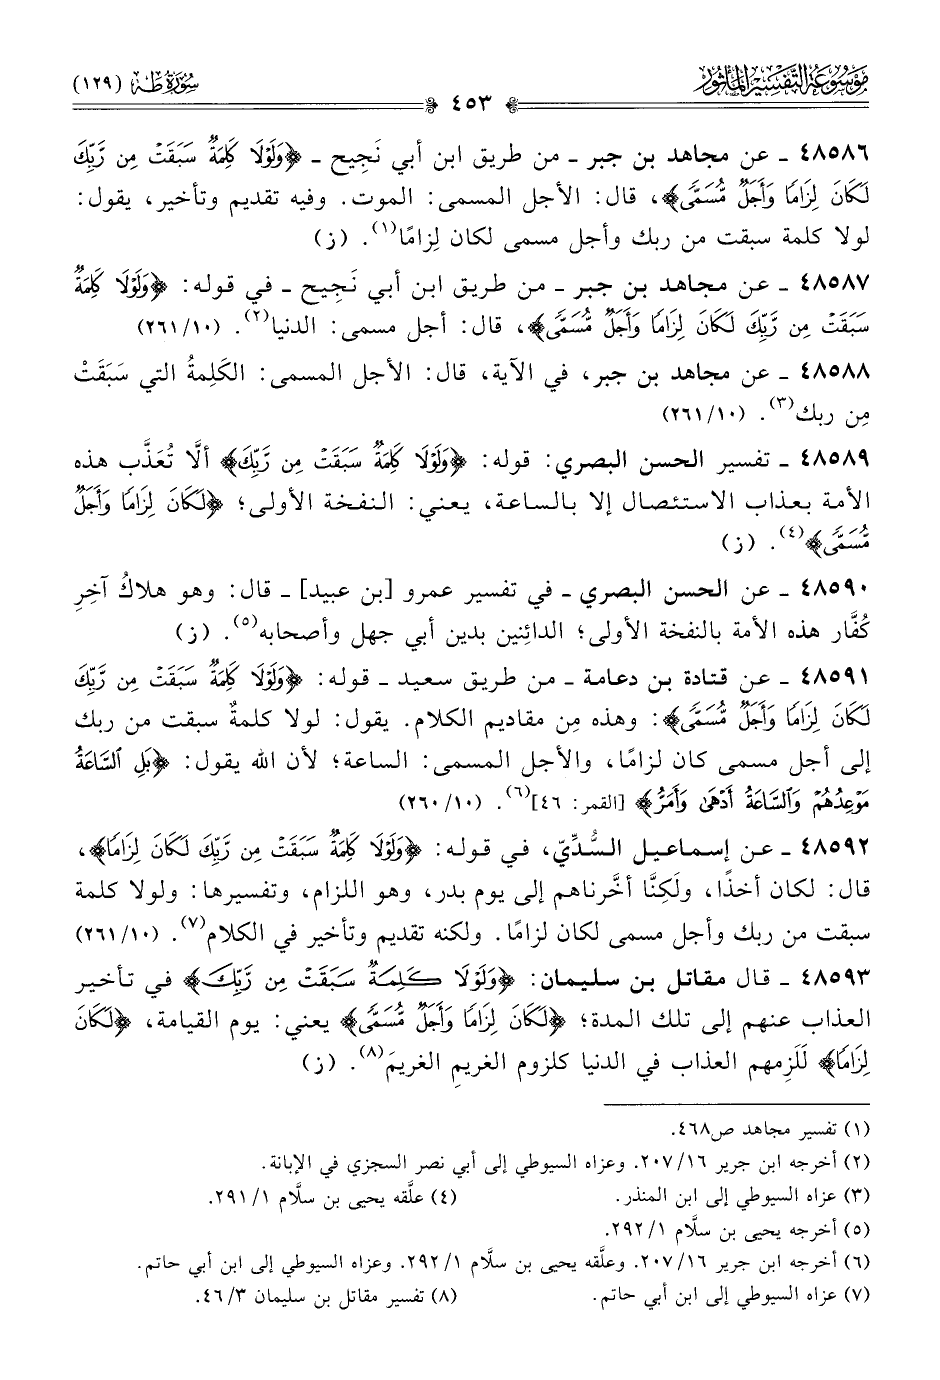 موسوعة التفسير المأثور
سورة طه (١٢٩)
٤٥٣
٤٨٥٨٦ ـ عن مجاهد بن جبر ـ من طريق ابن أبي نَجِيح ـ ﴿وَلَوْلَا كَلِمَةٌ سَبَقَتْ مِن رَّبِّكَ
لَكَانَ لِزَامًا وَأَجَلٌ مُّسَمًّى﴾، قال: الأجل المسمى: الموت. وفيه تقديم وتأخير، يقول:
لولا كلمة سبقت من ربك وأجل مسمى لكان لِزامًا(١). (ز)
٤٨٥٨٧ ـ عن مجاهد بن جبر ـ من طريق ابن أبي نَجِيح ـ في قوله: ﴿وَلَوْلَا كَلِمَةٌ
سَبَقَتْ مِن رَّبِّكَ لَكَانَ لِزَامًا وَأَجَلٌ مُّسَمًّى﴾، قال: أجل مسمى: الدنيا(٢). (٢٦١/١٠)
٤٨٥٨٨ ـ عن مجاهد بن جبر، في الآية، قال: الأجل المسمى: الكَلِمةُ التي سَبَقَتْ
مِن ربك(٣). (٢٦١/١٠)
٤٨٥٨٩ ـ تفسير الحسن البصري: قوله: ﴿وَلَوْلَا كَلِمَةٌ سَبَقَتْ مِن رَّبِّكَ﴾ ألَّا تُعَذَّب هذه
الأمة بعذاب الاستئصال إلا بالساعة، يعني: النفخة الأولى؛ ﴿لَكَانَ لِزَامًا وَأَجَلٌ
مُّسَمًّى﴾(٤). (ز)
٤٨٥٩٠ ـ عن الحسن البصري ـ في تفسير عمرو [بن عبيد] ـ قال: وهو هلاكُ آخِرِ
كُفَّار هذه الأمة بالنفخة الأولى؛ الدائِنين بدين أبي جهل وأصحابه(٥). (ز)
٤٨٥٩١ ـ عن قتادة بن دعامة ـ من طريق سعيد ـ قوله: ﴿وَلَوْلَا كَلِمَةٌ سَبَقَتْ مِن رَّبِّكَ
لَكَانَ لِزَامًا وَأَجَلٌ مُّسَمًّى﴾: وهذه مِن مقاديم الكلام. يقول: لولا كلمةٌ سبقت من ربك
إلى أجل مسمى كان لزامًا، والأجل المسمى: الساعة؛ لأن الله يقول: ﴿بَلِ ٱلسَّاعَةُ
مَوْعِدُهُمْ وَٱلسَّاعَةُ أَدْهَىٰ وَأَمَرُّ﴾ [القمر: ٤٦](٦). (٢٦٠/١٠)
٤٨٥٩٢ ـ عن إسماعيل السُّدِّيّ، في قوله: ﴿وَلَوْلَا كَلِمَةٌ سَبَقَتْ مِن رَّبِّكَ لَكَانَ لِزَامًا﴾،
قال: لكان أخذًا، ولَكِنَّا أخَّرناهم إلى يوم بدر، وهو اللزام، وتفسيرها: ولولا كلمة
سبقت من ربك وأجل مسمى لكان لزامًا. ولكنه تقديم وتأخير في الكلام(٧). (٢٦١/١٠)
٤٨٥٩٣ ـ قال مقاتل بن سليمان: ﴿وَلَوْلَا كَلِمَةٌ سَبَقَتْ مِن رَّبِّكَ﴾ في تأخير
العذاب عنهم إلى تلك المدة؛ ﴿لَكَانَ لِزَامًا وَأَجَلٌ مُّسَمًّى﴾ يعني: يوم القيامة، ﴿لَكَانَ
لِزَامًا﴾ لَلَزِمهم العذاب في الدنيا كلزوم الغريمِ الغريمَ(٨). (ز)
(١) تفسير مجاهد ص٤٦٨.
(٢) أخرجه ابن جرير ٢٠٧/١٦. وعزاه السيوطي إلى أبي نصر السجزي في الإبانة.
(٣) عزاه السيوطي إلى ابن المنذر. (٤) علَّقه يحيى بن سلَّام ٢٩١/١.
(٥) أخرجه يحيى بن سلَّام ٢٩٢/١.
(٦) أخرجه ابن جرير ٢٠٧/١٦. وعلَّقه يحيى بن سلَّام ٢٩٢/١. وعزاه السيوطي إلى ابن أبي حاتم.
(٧) عزاه السيوطي إلى ابن أبي حاتم. (٨) تفسير مقاتل بن سليمان ٤٦/٣.